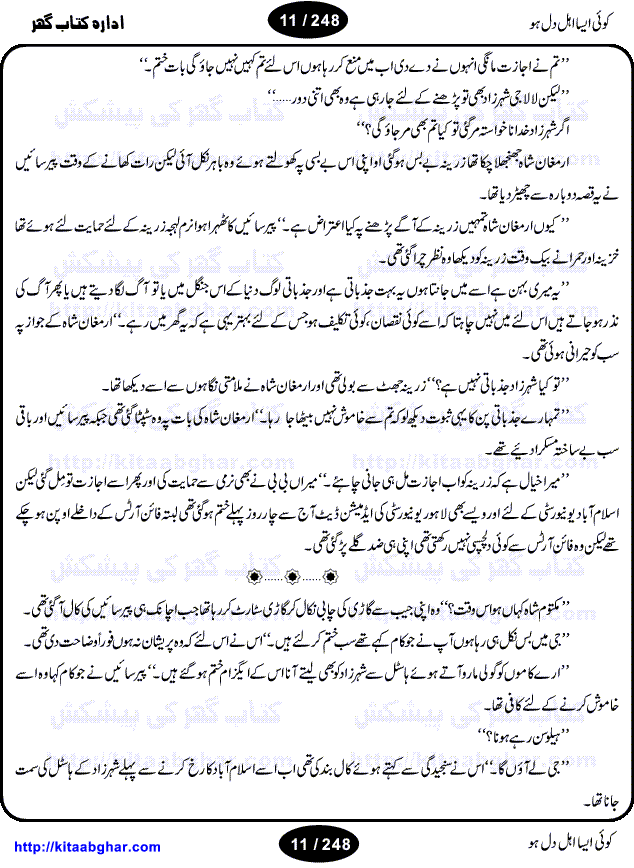 کوئی ایسا اہل دل ہو
11 / 248
ادارہ کتاب گھر
’’تم نے اجازت مانگی انہوں نے دے دی اب میں منع کر رہا ہوں اس لئے تم کہیں نہیں جاؤ گی بات ختم۔‘‘
’’لیکن لالا جی شہرزاد بھی تو پڑھنے کے لئے جا رہی ہے وہ بھی اتنی دور.....‘‘
اگر شہرزاد خدانا خواستہ مر گئی تو کیا تم بھی مر جاؤ گی؟‘‘
ارمغان شاہ جھنجھلا چکا تھا زرینہ بے بس ہو گئی او اپنی اس بے بسی پہ کھولتے ہوئے وہ باہر نکل آئی لیکن رات کھانے کے وقت پیر سائیں
نے یہ قصہ دوبارہ سے چھیڑ دیا تھا۔
’’کیوں ارمغان شاہ تمہیں زرینہ کے آگے پڑھنے پہ کیا اعتراض ہے۔‘‘ پیر سائیں کا ٹھہرا ہوا نرم لہجہ زرینہ کے لئے حمایت لئے ہوئے تھا
خزینہ اور حمرا نے بیک وقت زرینہ کو دیکھا وہ نظر چرا گئی تھی۔
’’یہ میری بہن ہے اسے میں جانتا ہوں یہ بہت جذباتی ہے اور جذباتی لوگ دنیا کے اس جنگل میں یا تو آگ لگا دیتے ہیں یا پھر آگ کی
نذر ہو جاتے ہیں اس لئے میں نہیں چاہتا کہ اسے کوئی نقصان، کوئی تکلیف ہو جس کے لئے بہتر یہی ہے کہ یہ گھر میں رہے۔‘‘ ارمغان شاہ کے جواز پہ
سب کو حیرانی ہوئی تھی۔
’’تو کیا شہرزاد جذباتی نہیں ہے؟‘‘ زرینہ جھٹ سے بولی تھی اور ارمغان شاہ نے ملامتی نگاہوں سے اسے دیکھا تھا۔
’’تمہارے جذباتی پن کا یہی ثبوت دیکھ لو کہ تم سے خاموش نہیں بیٹھا جا رہا۔‘‘ ارمغان شاہ کی بات پہ وہ سٹپٹا گئی تھی جبکہ پیر سائیں اور باقی
سب بے ساختہ مسکرا دیئے تھے۔
’’میرا خیال ہے کہ زرینہ کو اب اجازت مل ہی جانی چاہئے۔‘‘ میراں بی بی نے بھی نرمی سے حمایت کی اور پھر اسے اجازت تو مل گئی لیکن
اسلام آباد یونیورسٹی کے لئے اور ویسے بھی لاہور یونیورسٹی کی ایڈمیشن ڈیٹ آج سے چار روز پہلے ختم ہو گئی تھی البتہ فائن آرٹس کے داخلے اوپن ہو چکے
تھے لیکن وہ فائن آرٹس سے کوئی دلچسپی نہیں رکھتی تھی اپنی ہی ضد گلے پڑ گئی تھی۔
’’مکتوم شاہ کہاں ہو اس وقت؟‘‘ وہ اپنی جیب سے گاڑی کی چابی نکال کر گاڑی سٹارٹ کر رہا تھا جب اچانک ہی پیر سائیں کی کال آ گئی تھی۔
’’جی میں بس نکل ہی رہا ہوں آپ نے جو کام کہے تھے سب ختم کر لئے ہیں۔‘‘ اس نے اس لئے کہ وہ پریشان نہ ہوں فوراً وضاحت دی تھی۔
’’ارے کاموں کو گولی مارو آتے ہوئے ہاسٹل سے شہرزاد کو بھی لیتے آنا اس کے ایگزام ختم ہو گئے ہیں۔‘‘ پیر سائیں نے جو کام کہا وہ اسے
خاموش کرنے کے لئے کافی تھا۔
’’ہیلو سن رہے ہونا؟‘‘
’’جی لے آؤں گا۔‘‘ اس نے سنجیدگی سے کہتے ہوئے کال بند کی تھی اب اسے اسلام آباد کا رخ کرنے سے پہلے شہرزاد کے ہاسٹل کی سمت
جانا تھا۔
http://kitaabghar.com
11 / 248
کوئی ایسا اہل دل ہو